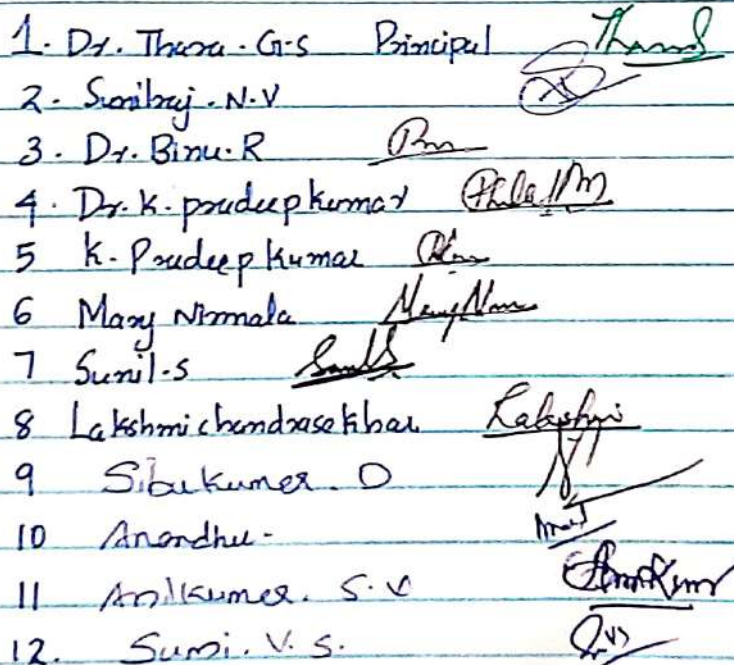 1. Dr. Thara. G-S Principal
2. Sunilraj. N.V
3. Dr. Binu. R
4. Dr. K. pradeep kumar
5 K. Pradeep Kumar
6 Mary Nirmala
7 Sunil-s
8 Lakshmi chandrasekhar Lakshmi
9 Sibukumar. D
10 Anandhu-
11 Anilkumar. S.V
12. Sumi. V. S.